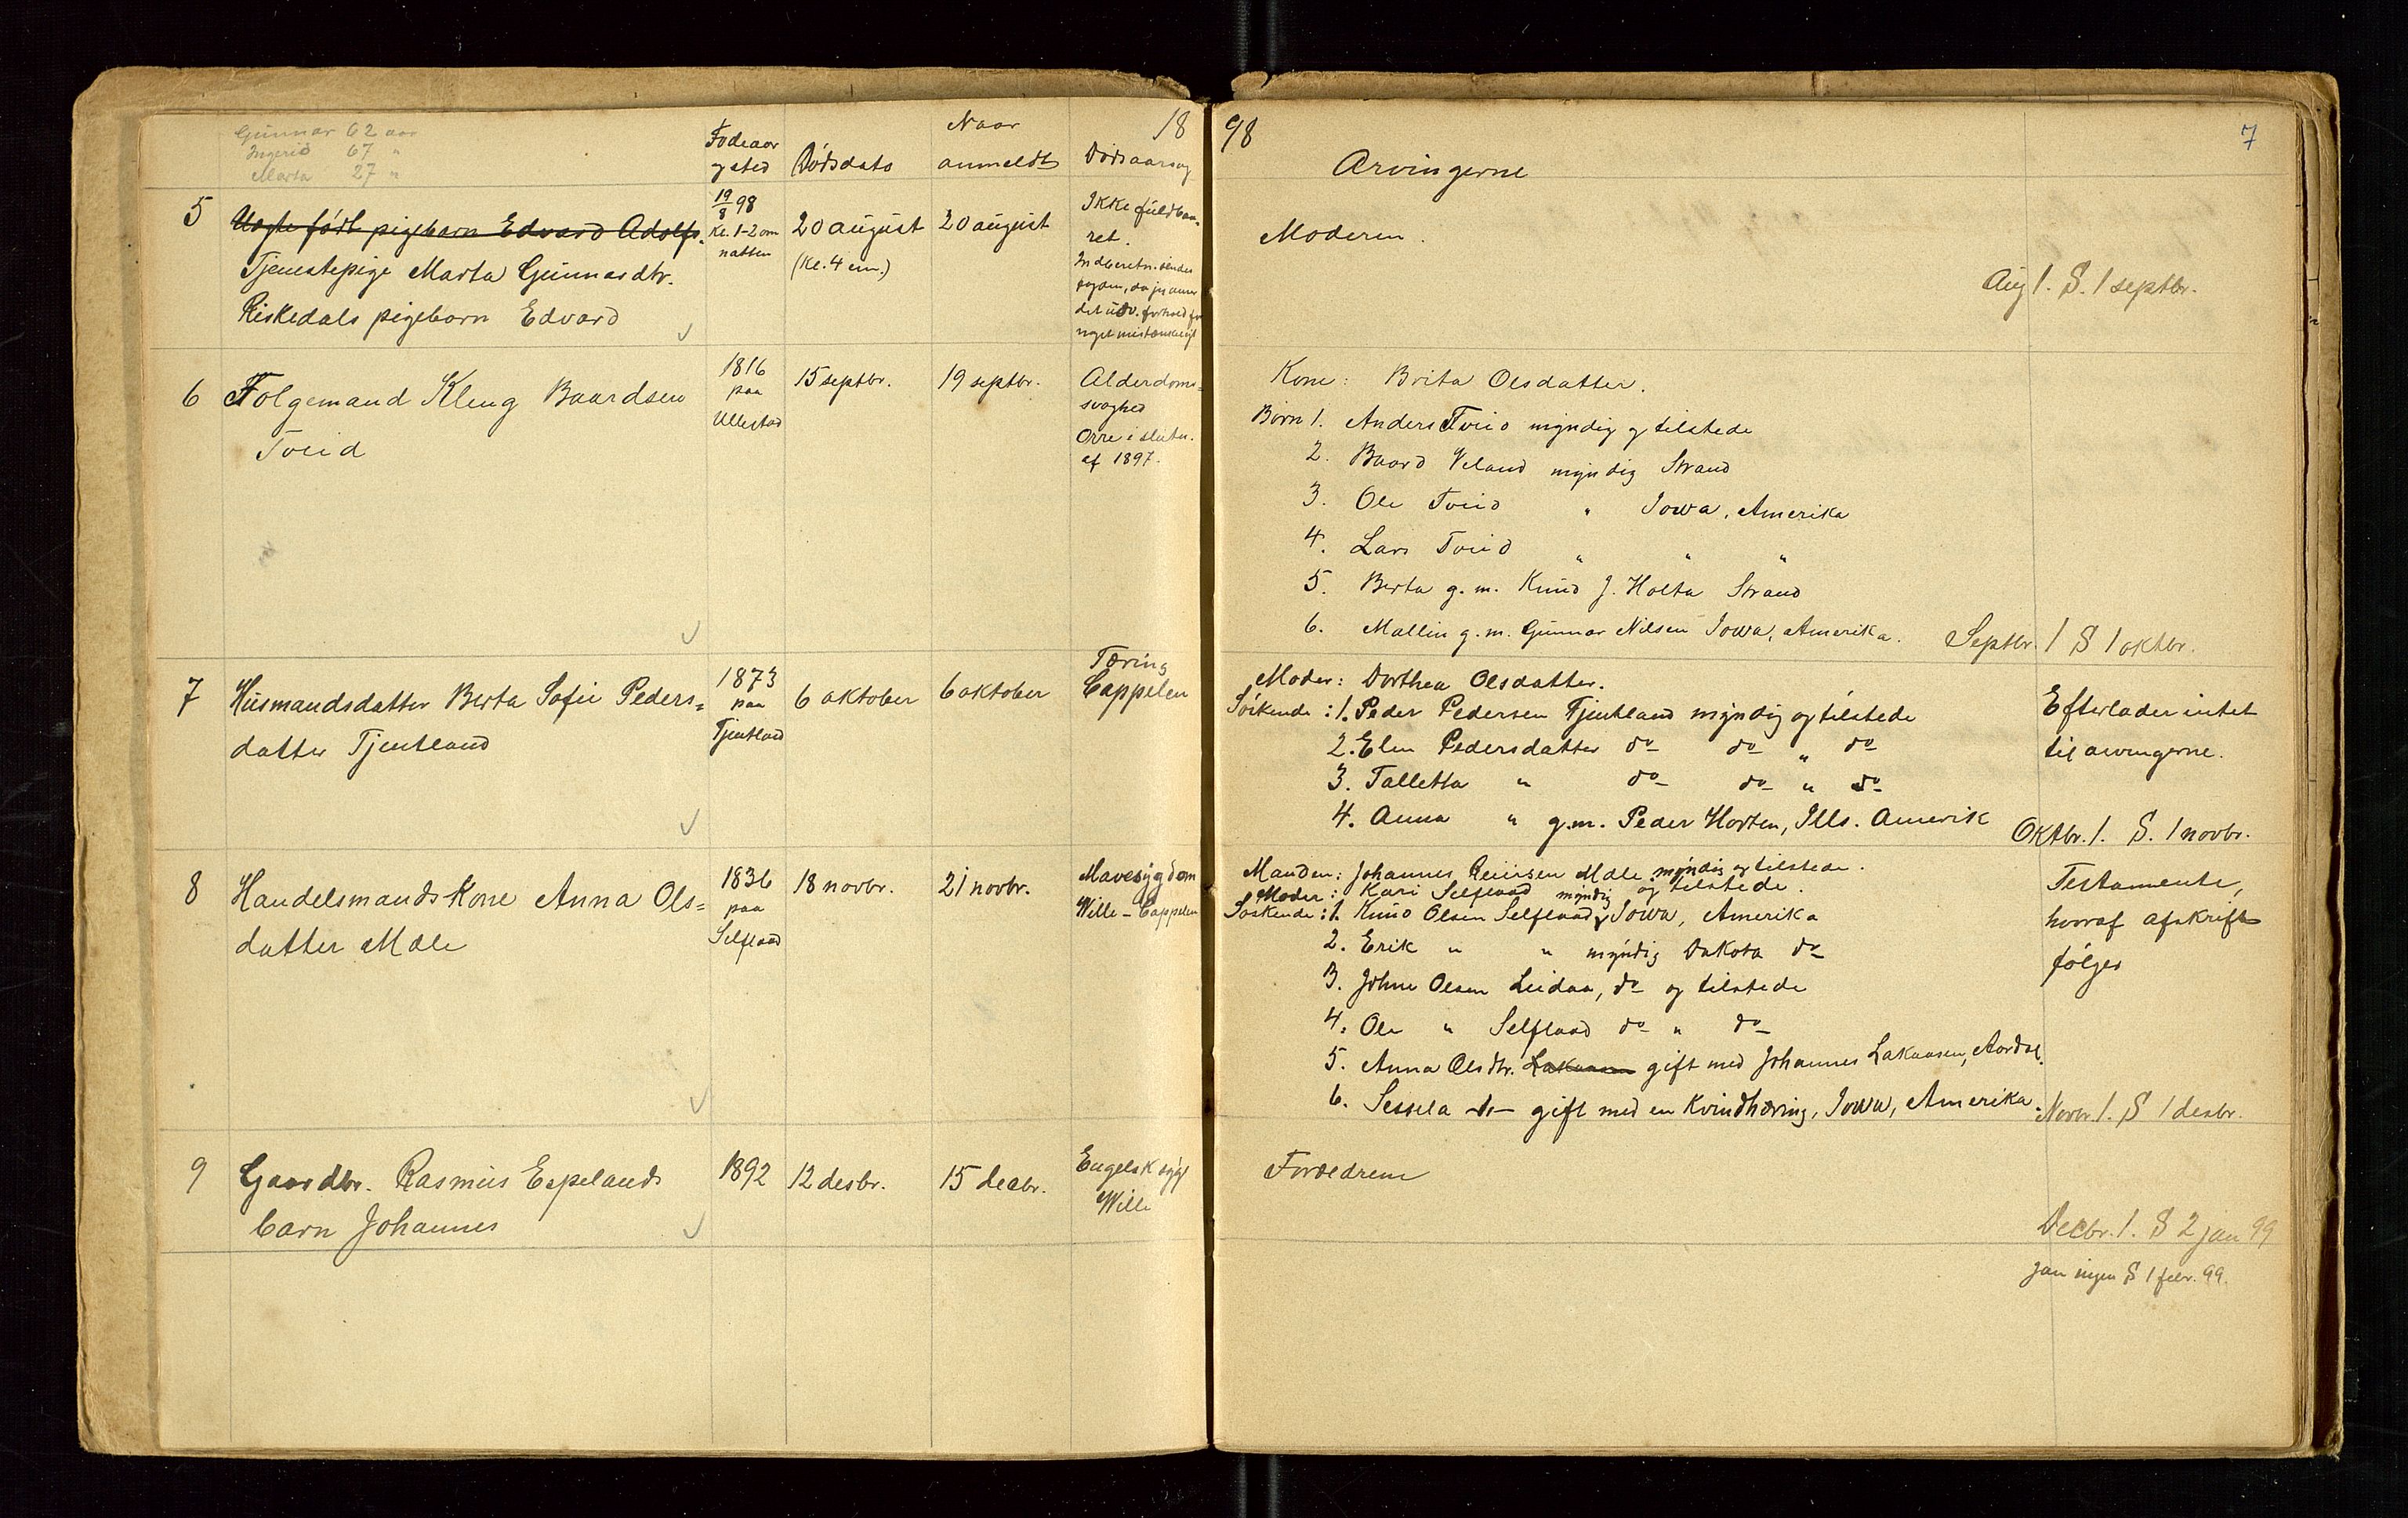 Gunnar 62 aar
Ingerid 67 "
Marta 27 "
Fødeaar
og sted
Dødsdato
Naar
anmeldt
18
Dødsaarsag
5
Uægte født pigebarn Edvard Adolfs.
Tjenestepige Marta Gunnardtr.
Riskedals pigebarn Edvard
19/8 98
Kl. 1-2 om
natten
20 august
(Kl. 4 em.)
20 august
Ikke fuldbaa-
ret.
Indberetn. sendes
6
Følgemand Kleng Baardsen
Tveid
1816
paa
Ullestad
15 septbr.
19 septbr.
Alderdoms-
svaghed
Orre i slutn.
af 1897.
7
Husmandsdatter Berta Sofie Peders=
datter Tjentland
1873
paa
Tjentland
6 oktober
6 oktober
Tæring
Cappelen
8
Handelsmands Kone Anna Ols=
datter Mæle
1836
paa
Selfland
18 novbr.
21 novbr.
Mavesygdom
Wille - Cappelen
9
Gaardbr. Rasmus Espelands
barn Johannes
1892
12 desbr.
15 decbr.
Engelsk syge
Wille
98
7
Arvingerne
Moderen.
Aug 1. S. 1 septbr.
Kone: Brita Olsdatter.
Børn 1. Anders Tveid myndig og tilstede
2. Baard Veland myndig Strand
3. Ole Tveid " Iowa, Amerika
4. Lars Tveid " " "
5. Berta g. m. Knud J. Holta Strand
6. Mallin g. m. Gunnar Nilsen Iowa, Amerika.
Septbr. 1 S 1 oktbr.
Moder: Dorthea Olsdatter.
Søskende: 1. Peder Pedersen Tjentland myndig og tilstede
2. Elen Pedersdatter do do " do
3. Talletta " do do " do
4. Anna " g.m. Peder Horten, Ills. Amerik
Efterlader intet
til arvingerne.
Oktbr. 1. S. 1 novbr.
Manden: Johannes Reiersen Mæle myndig og tilstede.
Moder: Kari Selfland myndig og tilstede.
Søskende: 1. Knud Olsen Selfland, Iowa, Amerika
2. Erik " " myndig Dakota do
3. Johne Olsen Leidaa, do og tilstede
4. Ole " Selfland do " do
5. Anna Olsdtr. Lakaasen gift med Johannes Lakaasen, Aardal.
6. Sessela do gift med en Kvindhæring, Iowa, Amerika.
Testamente,
hvoraf afskrift
følger
Novbr. 1. S 1 desbr.
Forældrene
Decbr. 1. S 2 jan 99
jan ingen S 1 febr. 99.